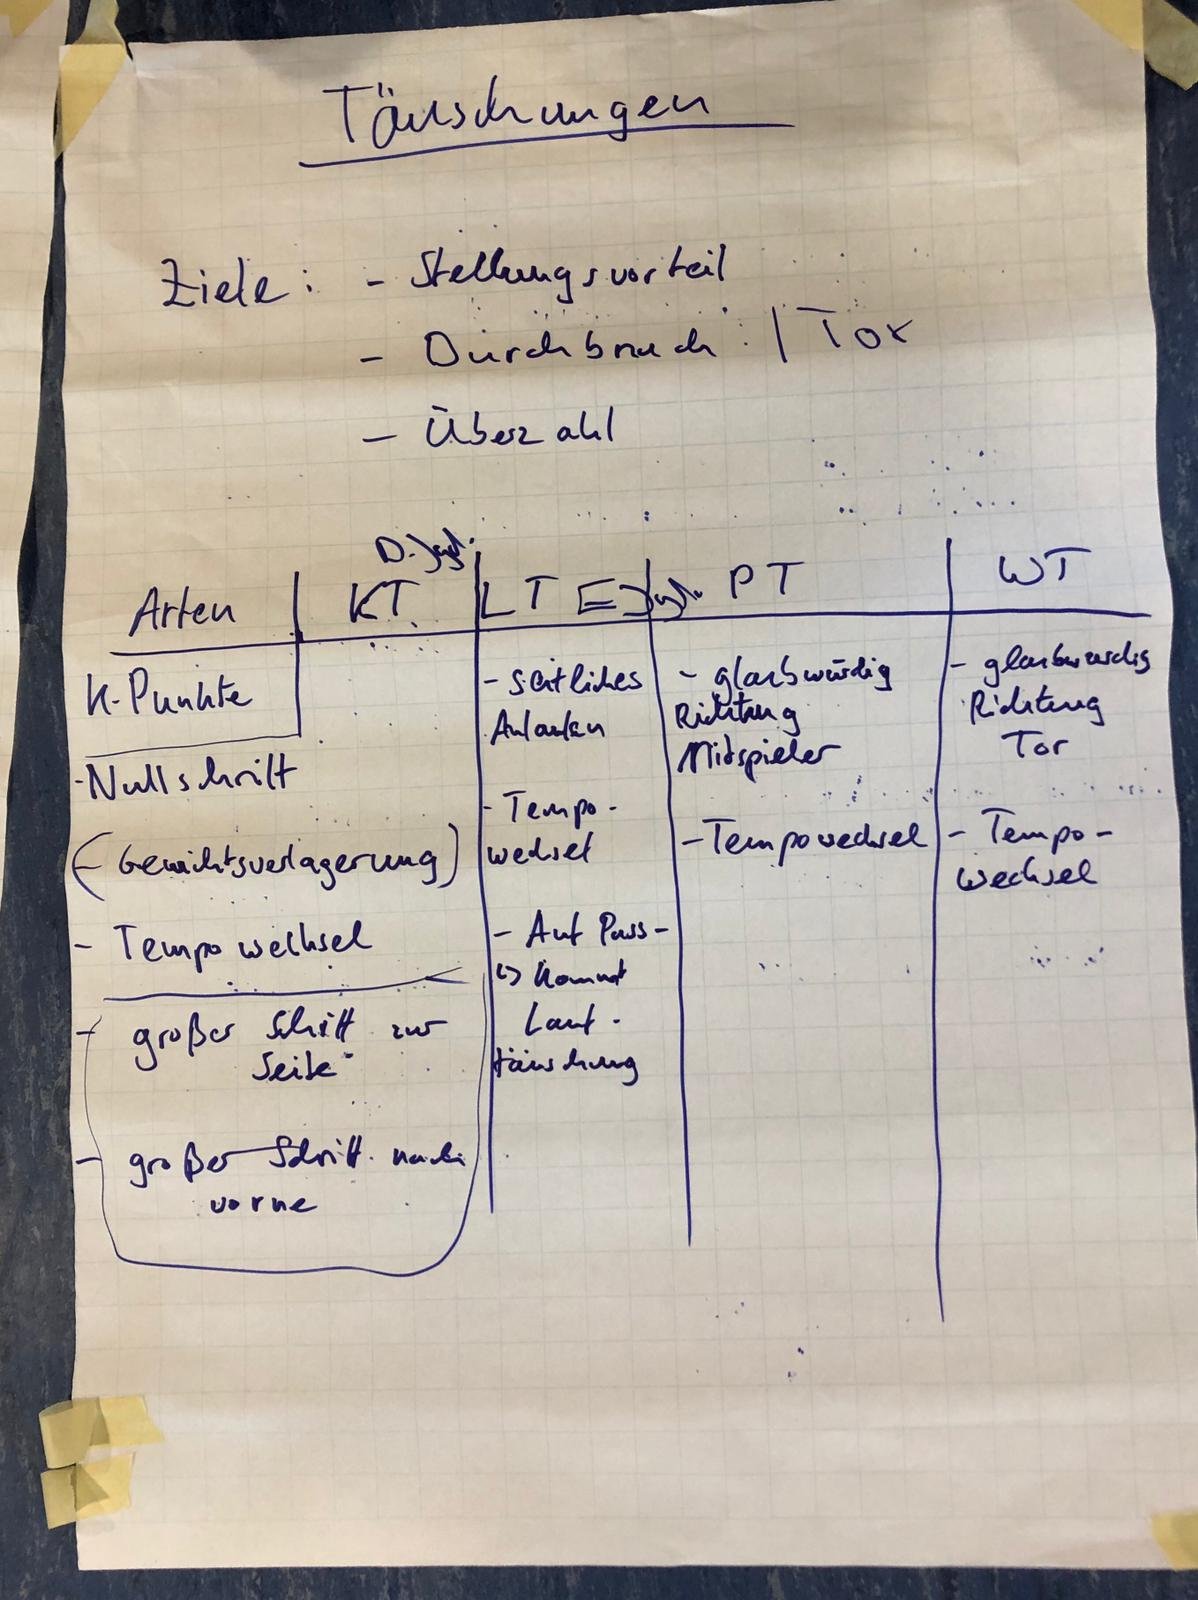 Täuschungen
Ziele: - Stellungsvorteil
- Durchbruch / Tor
- Überzahl
D. Jgd.
Arten KT LT E Jgd. PT WT
K-Punkte
- Nullschritt
(- Gewichtsverlagerung)
- Tempowechsel
- großer Schritt zur
Seite
- großer Schritt nach
vorne
- seitliches
Anlaufen
- Tempo-
wechsel
- Auf Pass-
↳ kommt
Lauf-
täuschung
- glaubwürdig
Richtung
Mitspieler
- Tempowechsel
- glaubwürdig
Richtung
Tor
- Tempo-
wechsel